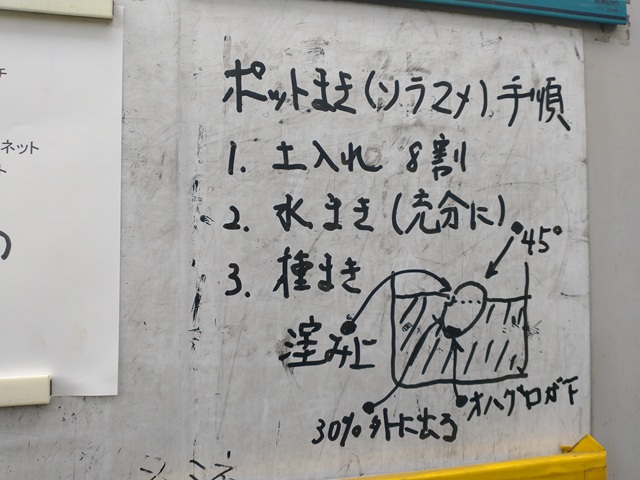 ネット
ポットまき(ソラマメ)手順
1. 土入れ 8割
2. 水まき(充分に)
3. 種まき
45°
窪みに
オハグロが下
30%外に出る